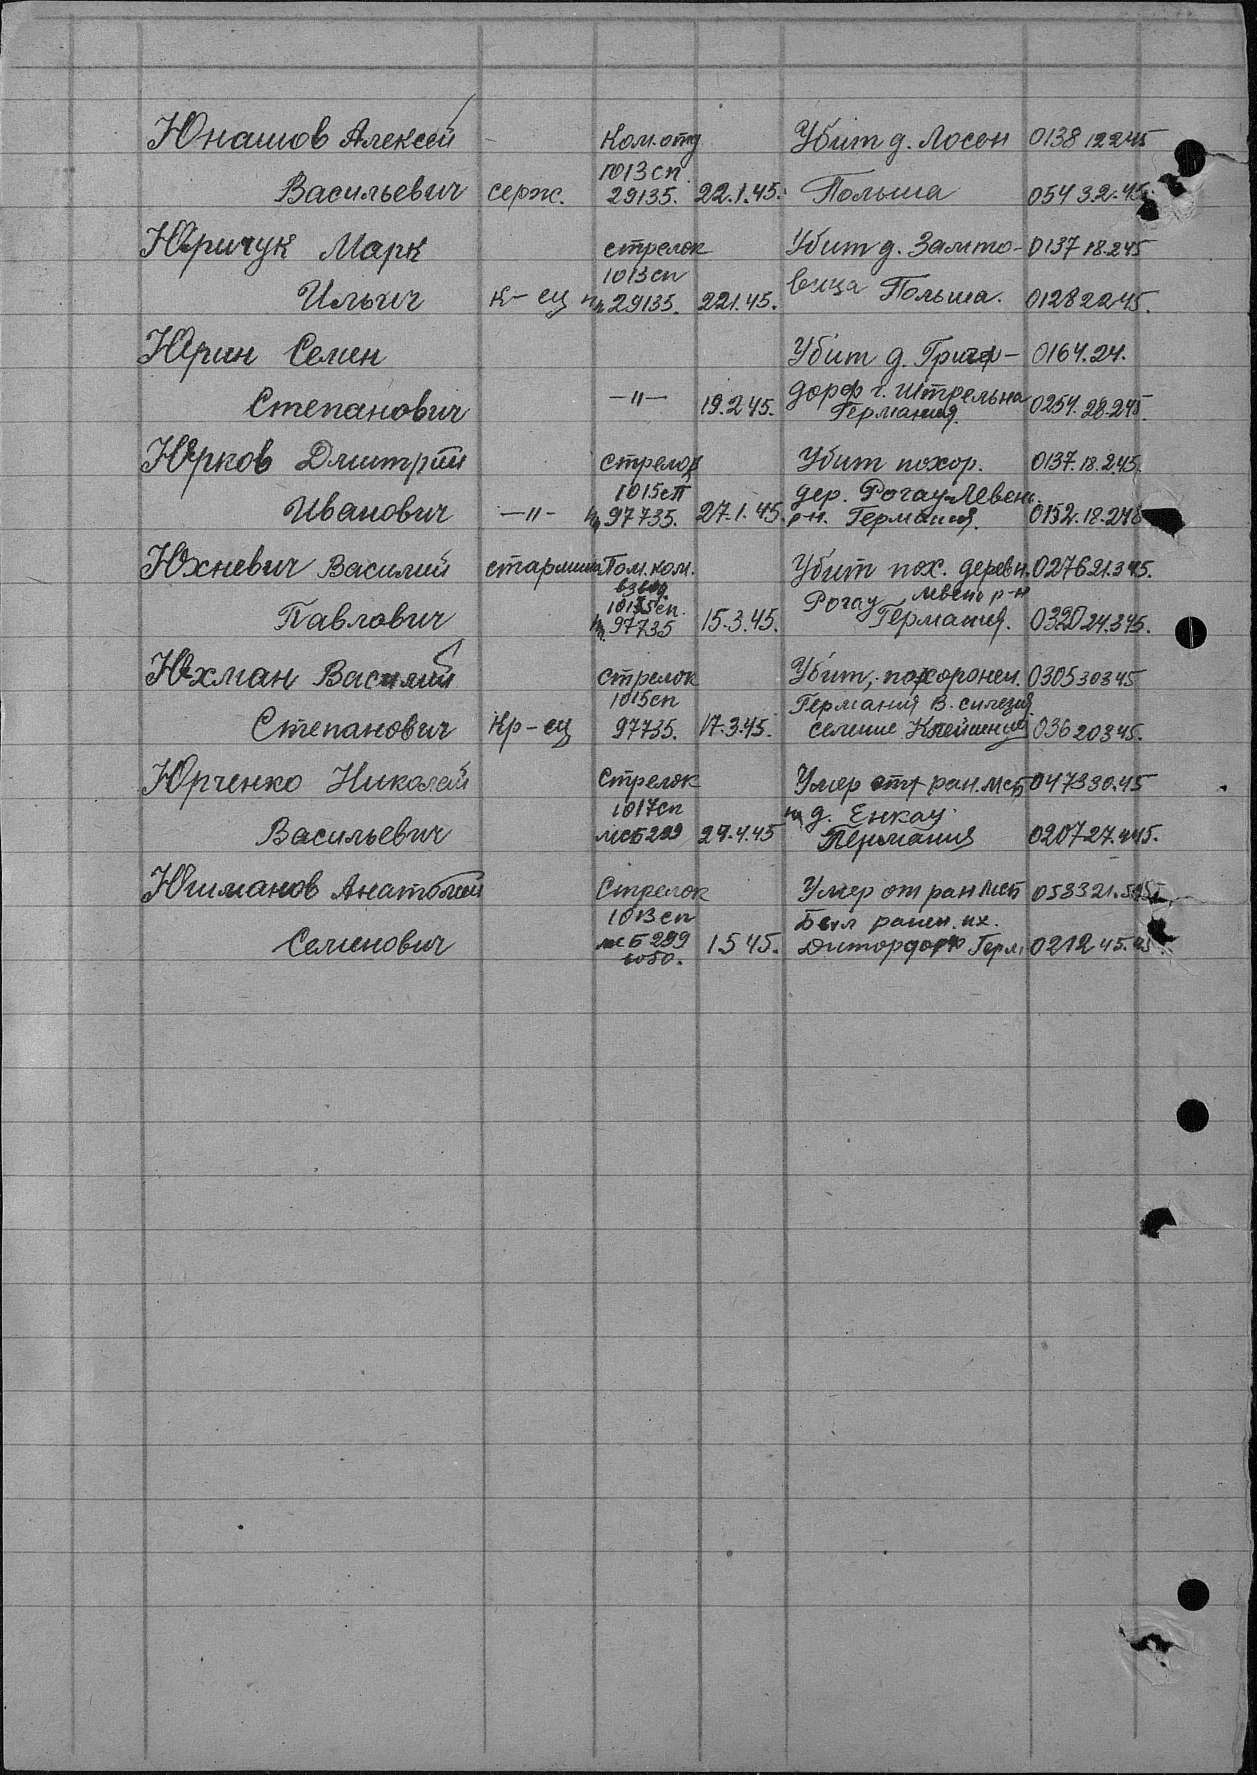 Юнашов Алексей Ком. отд. Убит д. Лосен 0138 12245
1013 сп.
Васильевич серж. 29135. 22.1.45. Польша 054 3.2.45.
Юричук Марк стрелок Убит д. Замто- 0137 18.245
1013 сп
Ильич к-ец пп 29135. 221.45. вица Польша. 0128 2245.
Юрин Семен Убит д. 0164. 24.
Степанович —"— 19.2 45. дорф г. Штрельна 0254. 28.245
Германия.
Юрков Дмитрий стрелок Убит похор. 0137. 18.2.45.
1015 сп дер. Рогау Левен.
Иванович —"— пп 97735. 27.1.45. р-н. Германия. 0152. 18.2
Юхневич Василий старшина Пом. ком. Убит пох. деревн. 0276 21.3 45.
взвод.
1015 сп. Рогау Левен р-н
Павлович пп 97735 15.3.45. Германия. 0320 24.3 45.
Юхман Василий стрелок Убит, похоронен. 0305 30345
1015 сп Германия В. силезия
Степанович Кр-ец 97735. 17.3.45. селение 036 20345.
Юрченко Николай Стрелок Умер от ран. МСБ 0473 30.45
1017 сп на д. Енкау.
Васильевич МСБ 299 29.4.45 Германия 0207 27.445.
Юшманов Анатолий Стрелок Умер от ран МСБ 0583 21.5
1013 сп Был ранен. их.
Семенович мсБ 299 1.5 45. Дитордорф Герм. 0212 45.45